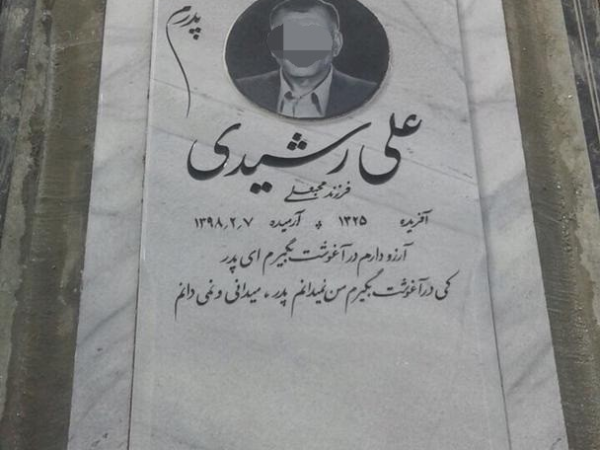 پدرم
علی رشیدی
فرزند محبعلی
آفریده ۱۳۲۵ * آرمیده ۱۳۹۸٫۲٫۷
آرزو دارم در آغوشت بگیرم ای پدر
کی در آغوشت بگیرم من نمیدانم پدر * میدانی و نمی دانم